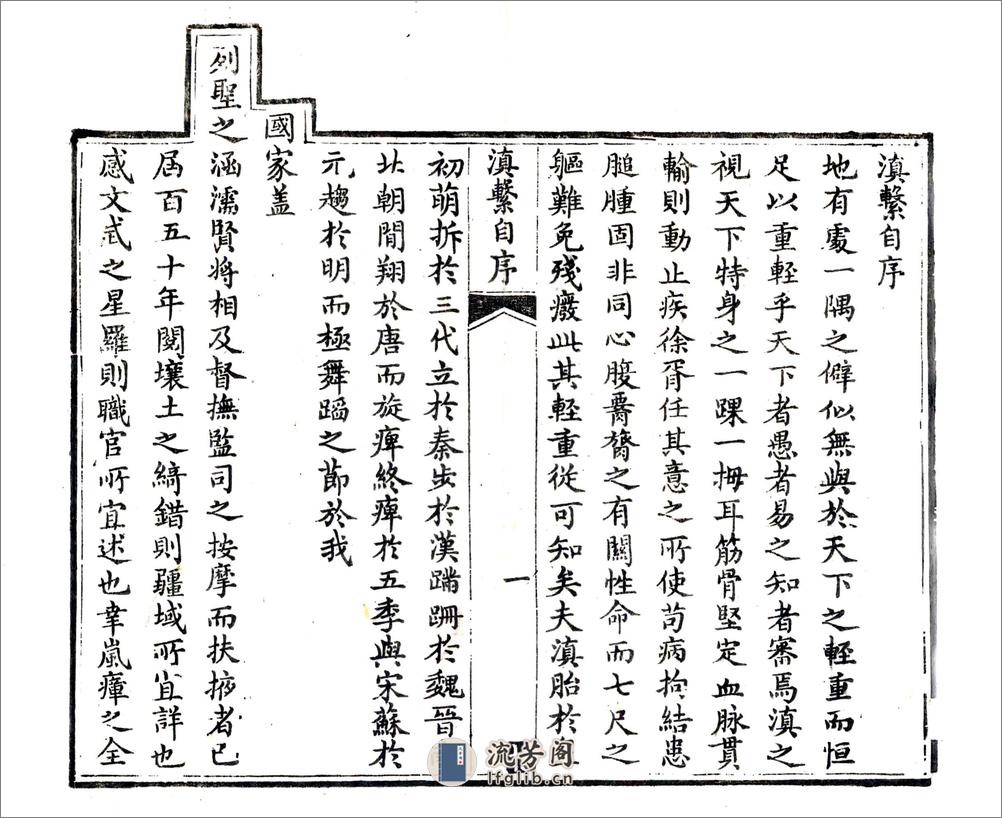 滇繫自序
地有處一隅之僻似無與於天下之輕重而恒
足以重輕乎天下者愚者易之知者審焉滇之
視天下特身之一踝一拇耳筋骨堅定血脉貫
輸則動止疾徐胥任其意之所使苟病拘結患
腿腫固非同心腹膏肓之有關性命而七尺之
軀難免殘癈此其輕重從可知矣夫滇胎於
滇繫自序
一
初萌拆於三代立於秦步於漢蹣跚於魏晉
北朝間翔於唐而旋痺終痺於五季與宋蘇於
元趨於明而極舞蹈之節於我
國家盖
列聖之涵濡賢將相及督撫監司之按摩而扶掖者已
屆百五十年閱壤土之綺錯則疆域所宜詳也
感文武之星羅則職官所宜述也幸嵐瘴之全
流芳阁
lfglib.cn